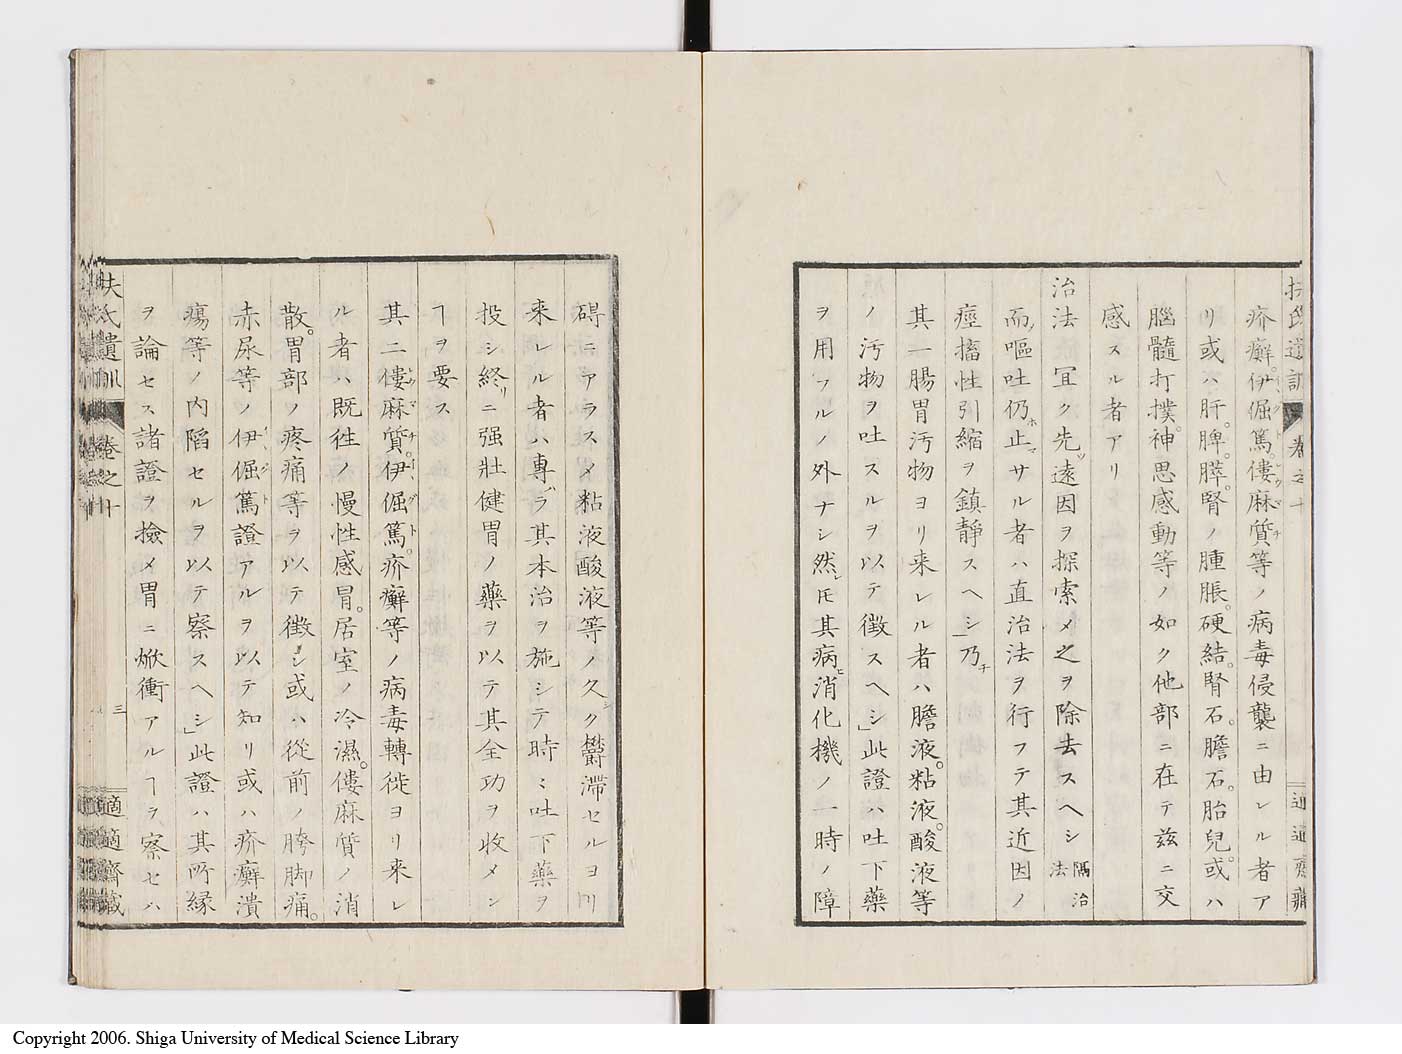 扶氏遺訓 卷之十
疥癬。伊倔篤。僂麻質等ノ病毒侵襲ニ由レル者ア
リ或ハ肝。脾。膵。腎ノ腫脹。硬結。腎石。膽石。胎兒。或ハ
腦髓打撲。神思感動等ノ如ク他部ニ在テ茲ニ交
感スル者アリ
治法 宜ク先ツ遠因ヲ探索メ之ヲ除去スヘシ 隔治法
而ノ嘔吐仍ホ止マサル者ハ直治法ヲ行フテ其近因ノ
痙搐性引縮ヲ鎮靜スヘシ」乃チ
其一腸胃汚物ヨリ来レル者ハ膽液。粘液。酸液等
ノ汚物ヲ吐スルヲ以テ徴スヘシ」此證ハ吐下藥
ヲ用フルノ外ナシ然レ𪜈其病ヒ消化機ノ一時ノ障
碍ニアラスメ粘液酸液等ノ久シク欝滯セルヨリ
来レル者ハ專ラ其本治ヲ施シテ時ミ吐下藥ヲ
投シ終リニ强壯健胃ノ藥ヲ以テ其全功ヲ收メン
ヿヲ要ス
其二僂麻質。伊倔篤。疥癬等ノ病毒轉徙ヨリ来レ
ル者ハ既徃ノ慢性感冒。居室ノ冷濕。僂麻質ノ消
散。胃部ノ疼痛等ヲ以テ徴シ或ハ從前ノ胯脚痛。
赤尿等ノ伊倔篤證アルヲ以テ知リ或ハ疥癬潰
瘍等ノ内陷セルヲ以テ察スヘシ」此證ハ其所縁
ヲ論セス諸證ヲ撿メ胃ニ焮衝アルヿヲ察セハ
扶氏遺訓 卷之十 三 適適齋藏